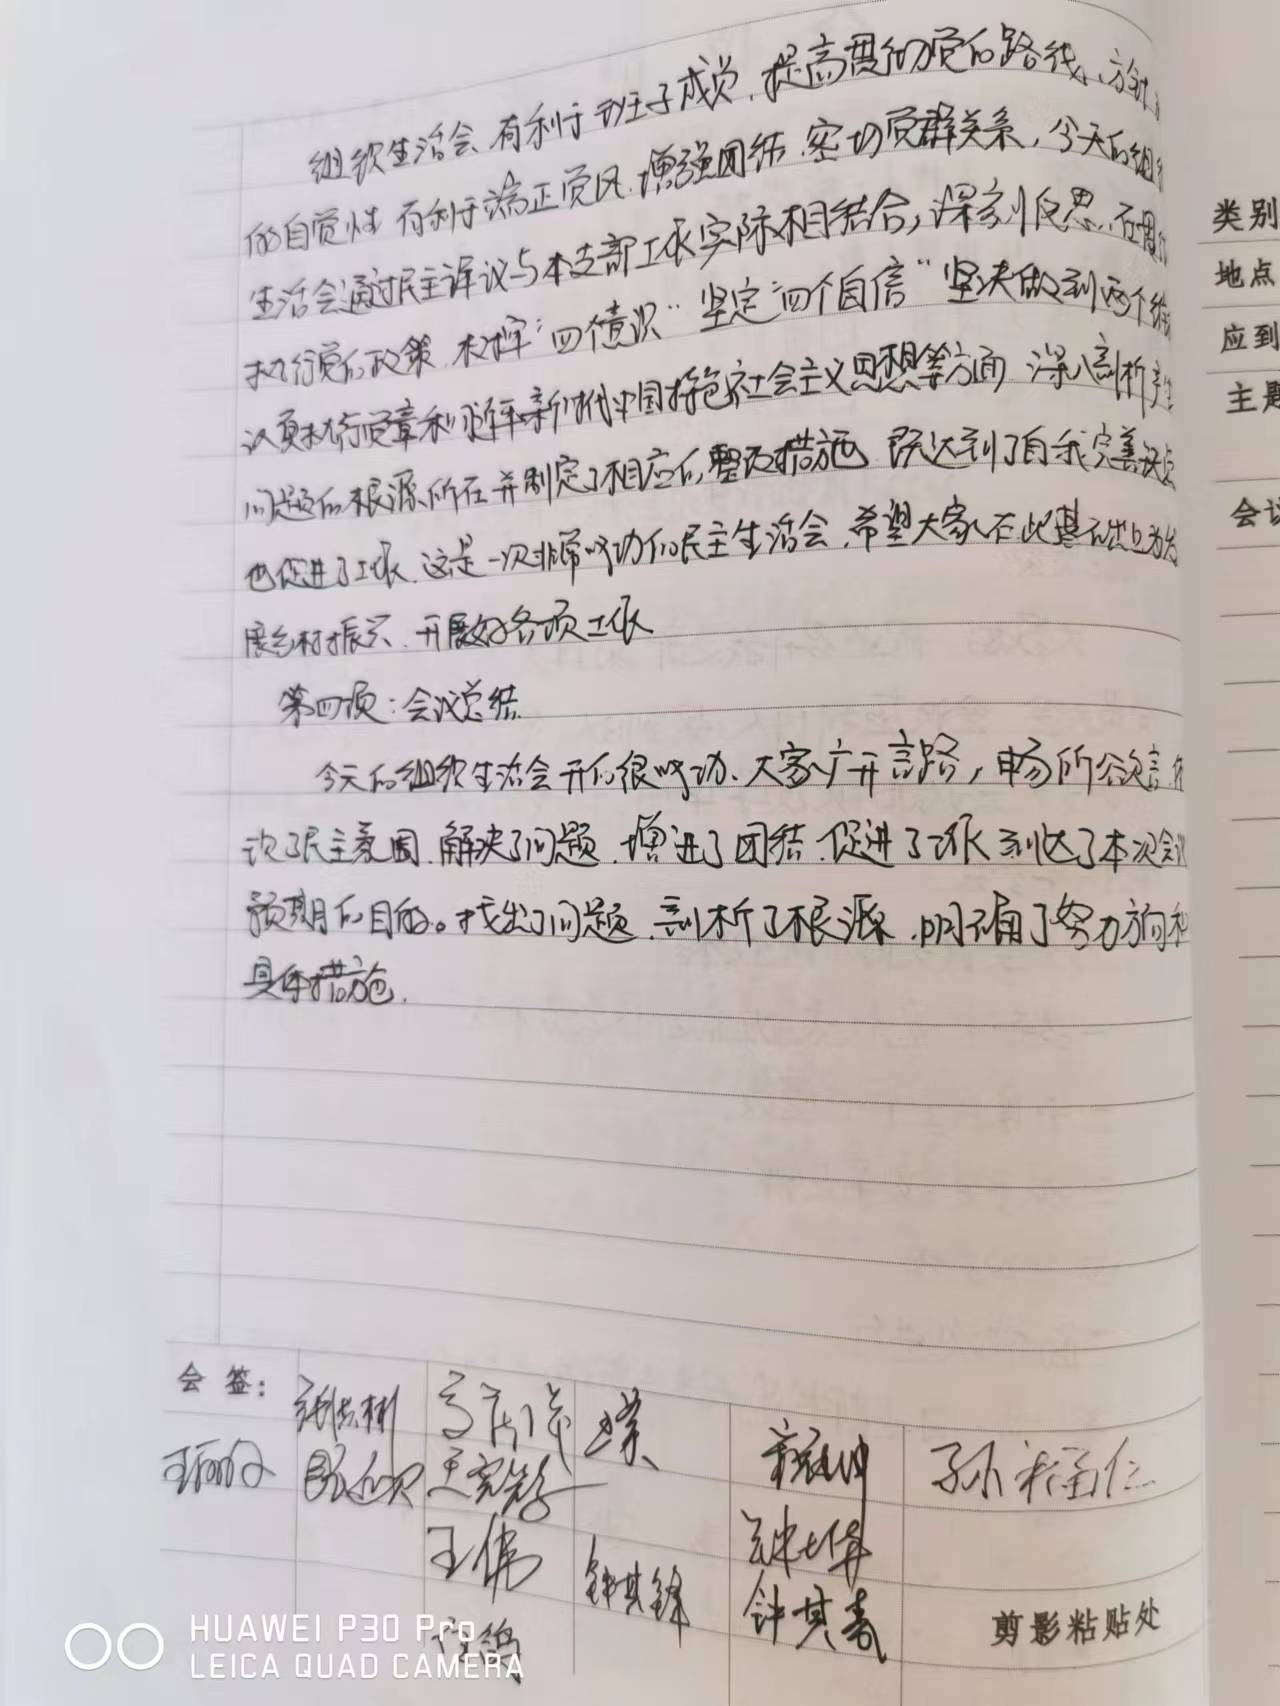 组织生活会有利于班子成员,提高贯彻党的路线、方针
的自觉性 有利于端正党风.增强团结.密切党群关系,今天的组
生活会通过民主评议与本支部工作实际相结合,深刻反思.在
执行党的政策. "四个意识" 坚定"四个自信" 坚决做到两个维
认真执行党章和 新时代中国特色社会主义思想等方面 深入剖析
问题的根源所在 并制定了相应的整改措施 既达到了自我完善
也促进了工作.这是一次非常成功的民主生活会.希望大家在此基础上为发
展乡村振兴.开展好各项工作
第四项:会议总结
今天的组织生活会开的很成功、大家广开言路,畅所欲言.
了民主氛围.解决了问题.增进了团结.促进了工作 到达了本次会议
预期的目的。找出了问题.剖析了根源.明确了努力方向和
具体措施.
会 签:
王伟
钟其锋
钟其春
孙福仁
剪影粘贴处
类别
地点
应到
主题
会议
HUAWEI P30 Pro
LEICA QUAD CAMERA